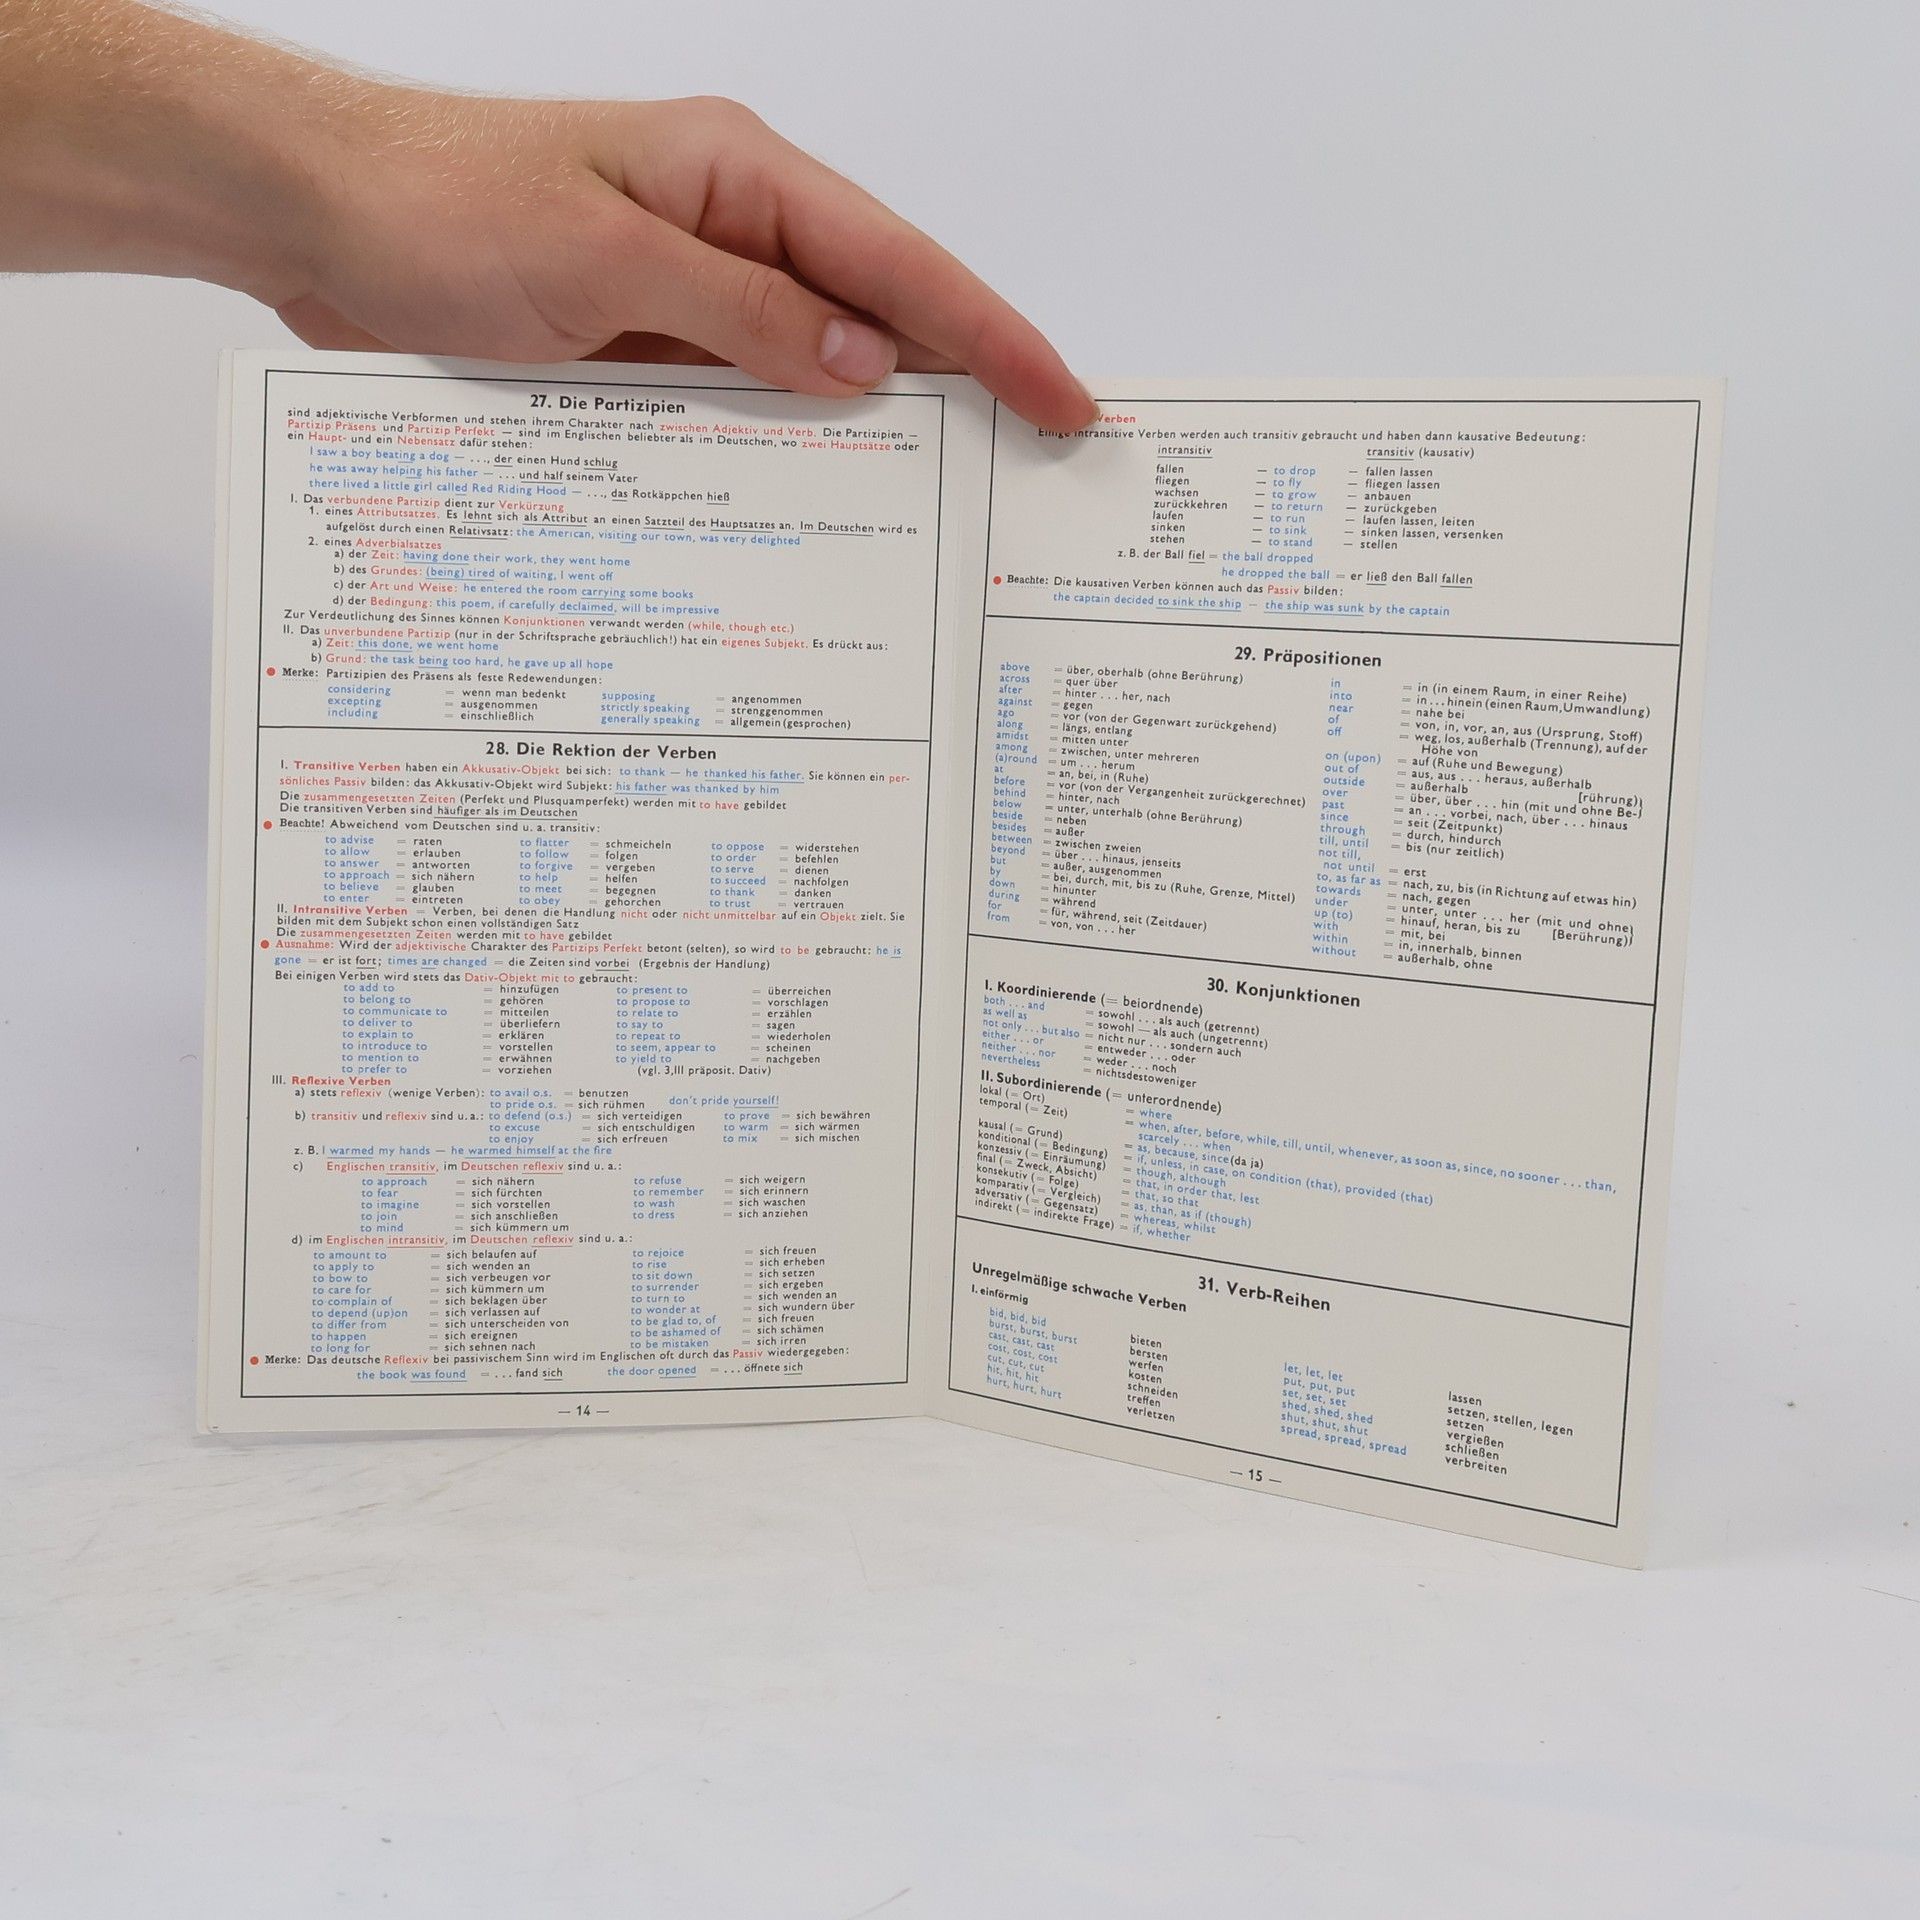 27. Die Partizipien
sind adjektivische Verbformen und stehen ihrem Charakter nach zwischen Adjektiv und Verb. Die Partizipien —
Partizip Präsens und Partizip Perfekt — sind im Englischen beliebter als im Deutschen, wo zwei Hauptsätze oder
ein Haupt- und ein Nebensatz dafür stehen:
I saw a boy beating a dog — ..., der einen Hund schlug
he was away helping his father — ... und half seinem Vater
there lived a little girl called Red Riding Hood — ..., das Rotkäppchen hieß
I. Das verbundene Partizip dient zur Verkürzung
1. eines Attributsatzes. Es lehnt sich als Attribut an einen Satzteil des Hauptsatzes an. Im Deutschen wird es
aufgelöst durch einen Relativsatz: the American, visiting our town, was very delighted
2. eines Adverbialsatzes
a) der Zeit: having done their work, they went home
b) des Grundes: (being) tired of waiting, I went off
c) der Art und Weise: he entered the room carrying some books
d) der Bedingung: this poem, if carefully declaimed, will be impressive
Zur Verdeutlichung des Sinnes können Konjunktionen verwandt werden (while, though etc.)
II. Das unverbundene Partizip (nur in der Schriftsprache gebräuchlich!) hat ein eigenes Subjekt. Es drückt aus:
a) Zeit: this done, we went home
b) Grund: the task being too hard, he gave up all hope
Merke: Partizipien des Präsens als feste Redewendungen:
considering = wenn man bedenkt supposing = angenommen
excepting = ausgenommen strictly speaking = strenggenommen
including = einschließlich generally speaking = allgemein (gesprochen)
28. Die Rektion der Verben
I. Transitive Verben haben ein Akkusativ-Objekt bei sich: to thank — he thanked his father. Sie können ein per-
sönliches Passiv bilden: das Akkusativ-Objekt wird Subjekt: his father was thanked by him
Die zusammengesetzten Zeiten (Perfekt und Plusquamperfekt) werden mit to have gebildet
Die transitiven Verben sind häufiger als im Deutschen
Beachte! Abweichend vom Deutschen sind u. a. transitiv:
to advise = raten to flatter = schmeicheln to oppose = widerstehen
to allow = erlauben to follow = folgen to order = befehlen
to answer = antworten to forgive = vergeben to serve = dienen
to approach = sich nähern to help = helfen to succeed = nachfolgen
to believe = glauben to meet = begegnen to thank = danken
to enter = eintreten to obey = gehorchen to trust = vertrauen
II. Intransitive Verben = Verben, bei denen die Handlung nicht oder nicht unmittelbar auf ein Objekt zielt. Sie
bilden mit dem Subjekt schon einen vollständigen Satz
Die zusammengesetzten Zeiten werden mit to have gebildet
Ausnahme: Wird der adjektivische Charakter des Partizips Perfekt betont (selten), so wird to be gebraucht: he is
gone = er ist fort; times are changed = die Zeiten sind vorbei (Ergebnis der Handlung)
Bei einigen Verben wird stets das Dativ-Objekt mit to gebraucht:
to add to = hinzufügen to present to = überreichen
to belong to = gehören to propose to = vorschlagen
to communicate to = mitteilen to relate to = erzählen
to deliver to = überliefern to say to = sagen
to explain to = erklären to repeat to = wiederholen
to introduce to = vorstellen to seem, appear to = scheinen
to mention to = erwähnen to yield to = nachgeben
to prefer to = vorziehen (vgl. 3,III präposit. Dativ)
III. Reflexive Verben
a) stets reflexiv (wenige Verben): to avail o.s. = benutzen
to pride o.s. = sich rühmen don't pride yourself!
b) transitiv und reflexiv sind u.a.: to defend (o.s.) = sich verteidigen to prove = sich bewähren
to excuse = sich entschuldigen to warm = sich wärmen
to enjoy = sich erfreuen to mix = sich mischen
z. B. I warmed my hands — he warmed himself at the fire
c) Englischen transitiv, im Deutschen reflexiv sind u. a.:
to approach = sich nähern to refuse = sich weigern
to fear = sich fürchten to remember = sich erinnern
to imagine = sich vorstellen to wash = sich waschen
to join = sich anschließen to dress = sich anziehen
to mind = sich kümmern um
d) im Englischen intransitiv, im Deutschen reflexiv sind u. a.:
to amount to = sich belaufen auf to rejoice = sich freuen
to apply to = sich wenden an to rise = sich erheben
to bow to = sich verbeugen vor to sit down = sich setzen
to care for = sich kümmern um to surrender = sich ergeben
to complain of = sich beklagen über to turn to = sich wenden an
to depend (up)on = sich verlassen auf to wonder at = sich wundern über
to differ from = sich unterscheiden von to be glad to, of = sich freuen
to happen = sich ereignen to be ashamed of = sich schämen
to long for = sich sehnen nach to be mistaken = sich irren
Merke: Das deutsche Reflexiv bei passivischem Sinn wird im Englischen oft durch das Passiv wiedergegeben:
the book was found = ... fand sich the door opened = ... öffnete sich
— 14 —
Verben
Einige intransitive Verben werden auch transitiv gebraucht und haben dann kausative Bedeutung:
intransitiv transitiv (kausativ)
fallen — to drop — fallen lassen
fliegen — to fly — fliegen lassen
wachsen — to grow — anbauen
zurückkehren — to return — zurückgeben
laufen — to run — laufen lassen, leiten
sinken — to sink — sinken lassen, versenken
stehen — to stand — stellen
z. B. der Ball fiel = the ball dropped
he dropped the ball = er ließ den Ball fallen
Beachte: Die kausativen Verben können auch das Passiv bilden:
the captain decided to sink the ship — the ship was sunk by the captain
29. Präpositionen
above = über, oberhalb (ohne Berührung)
across = quer über
after = hinter ... her, nach
against = gegen
ago = vor (von der Gegenwart zurückgehend)
along = längs, entlang
amidst = mitten unter
among = zwischen, unter mehreren
(a)round = um ... herum
at = an, bei, in (Ruhe)
before = vor (von der Vergangenheit zurückgerechnet)
behind = hinter, nach
below = unter, unterhalb (ohne Berührung)
beside = neben
besides = außer
between = zwischen zweien
beyond = über ... hinaus, jenseits
but = außer, ausgenommen
by = bei, durch, mit, bis zu (Ruhe, Grenze, Mittel)
down = hinunter
during = während
for = für, während, seit (Zeitdauer)
from = von, von ... her
in = in (in einem Raum, in einer Reihe)
into = in ... hinein (einen Raum, Umwandlung)
near = nahe bei
of = von, in, vor, an, aus (Ursprung, Stoff)
off = weg, los, außerhalb (Trennung), auf der
Höhe von
on (upon) = auf (Ruhe und Bewegung)
out of = aus, aus ... heraus, außerhalb
outside = außerhalb [rührung)]
over = über, über ... hin (mit und ohne Be-]
past = an ... vorbei, nach, über ... hinaus
since = seit (Zeitpunkt)
through = durch, hindurch
till, until = bis (nur zeitlich)
not till,
not until = erst
to, as far as = nach, zu, bis (in Richtung auf etwas hin)
towards = nach, gegen
under = unter, unter ... her (mit und ohne]
up (to) = hinauf, heran, bis zu [Berührung)]
with = mit, bei
within = in, innerhalb, binnen
without = außerhalb, ohne
30. Konjunktionen
I. Koordinierende (= beiordnende)
both ... and = sowohl ... als auch (getrennt)
as well as = sowohl — als auch (ungetrennt)
not only ... but also = nicht nur ... sondern auch
either ... or = entweder ... oder
neither ... nor = weder ... noch
nevertheless = nichtsdestoweniger
II. Subordinierende (= unterordnende)
lokal (= Ort) = where
temporal (= Zeit) = when, after, before, while, till, until, whenever, as soon as, since, no sooner ... than,
scarcely ... when
kausal (= Grund) = as, because, since (da ja)
konditional (= Bedingung) = if, unless, in case, on condition (that), provided (that)
konzessiv (= Einräumung) = though, although
final (= Zweck, Absicht) = that, in order that, lest
konsekutiv (= Folge) = that, so that
komparativ (= Vergleich) = as, than, as if (though)
adversativ (= Gegensatz) = whereas, whilst
indirekt (= indirekte Frage) = if, whether
31. Verb-Reihen
Unregelmäßige schwache Verben
I. einförmig
bid, bid, bid bieten
burst, burst, burst bersten
cast, cast, cast werfen
cost, cost, cost kosten
cut, cut, cut schneiden
hit, hit, hit treffen
hurt, hurt, hurt verletzen
let, let, let lassen
put, put, put setzen, stellen, legen
set, set, set setzen
shed, shed, shed vergießen
shut, shut, shut schließen
spread, spread, spread verbreiten
— 15 —